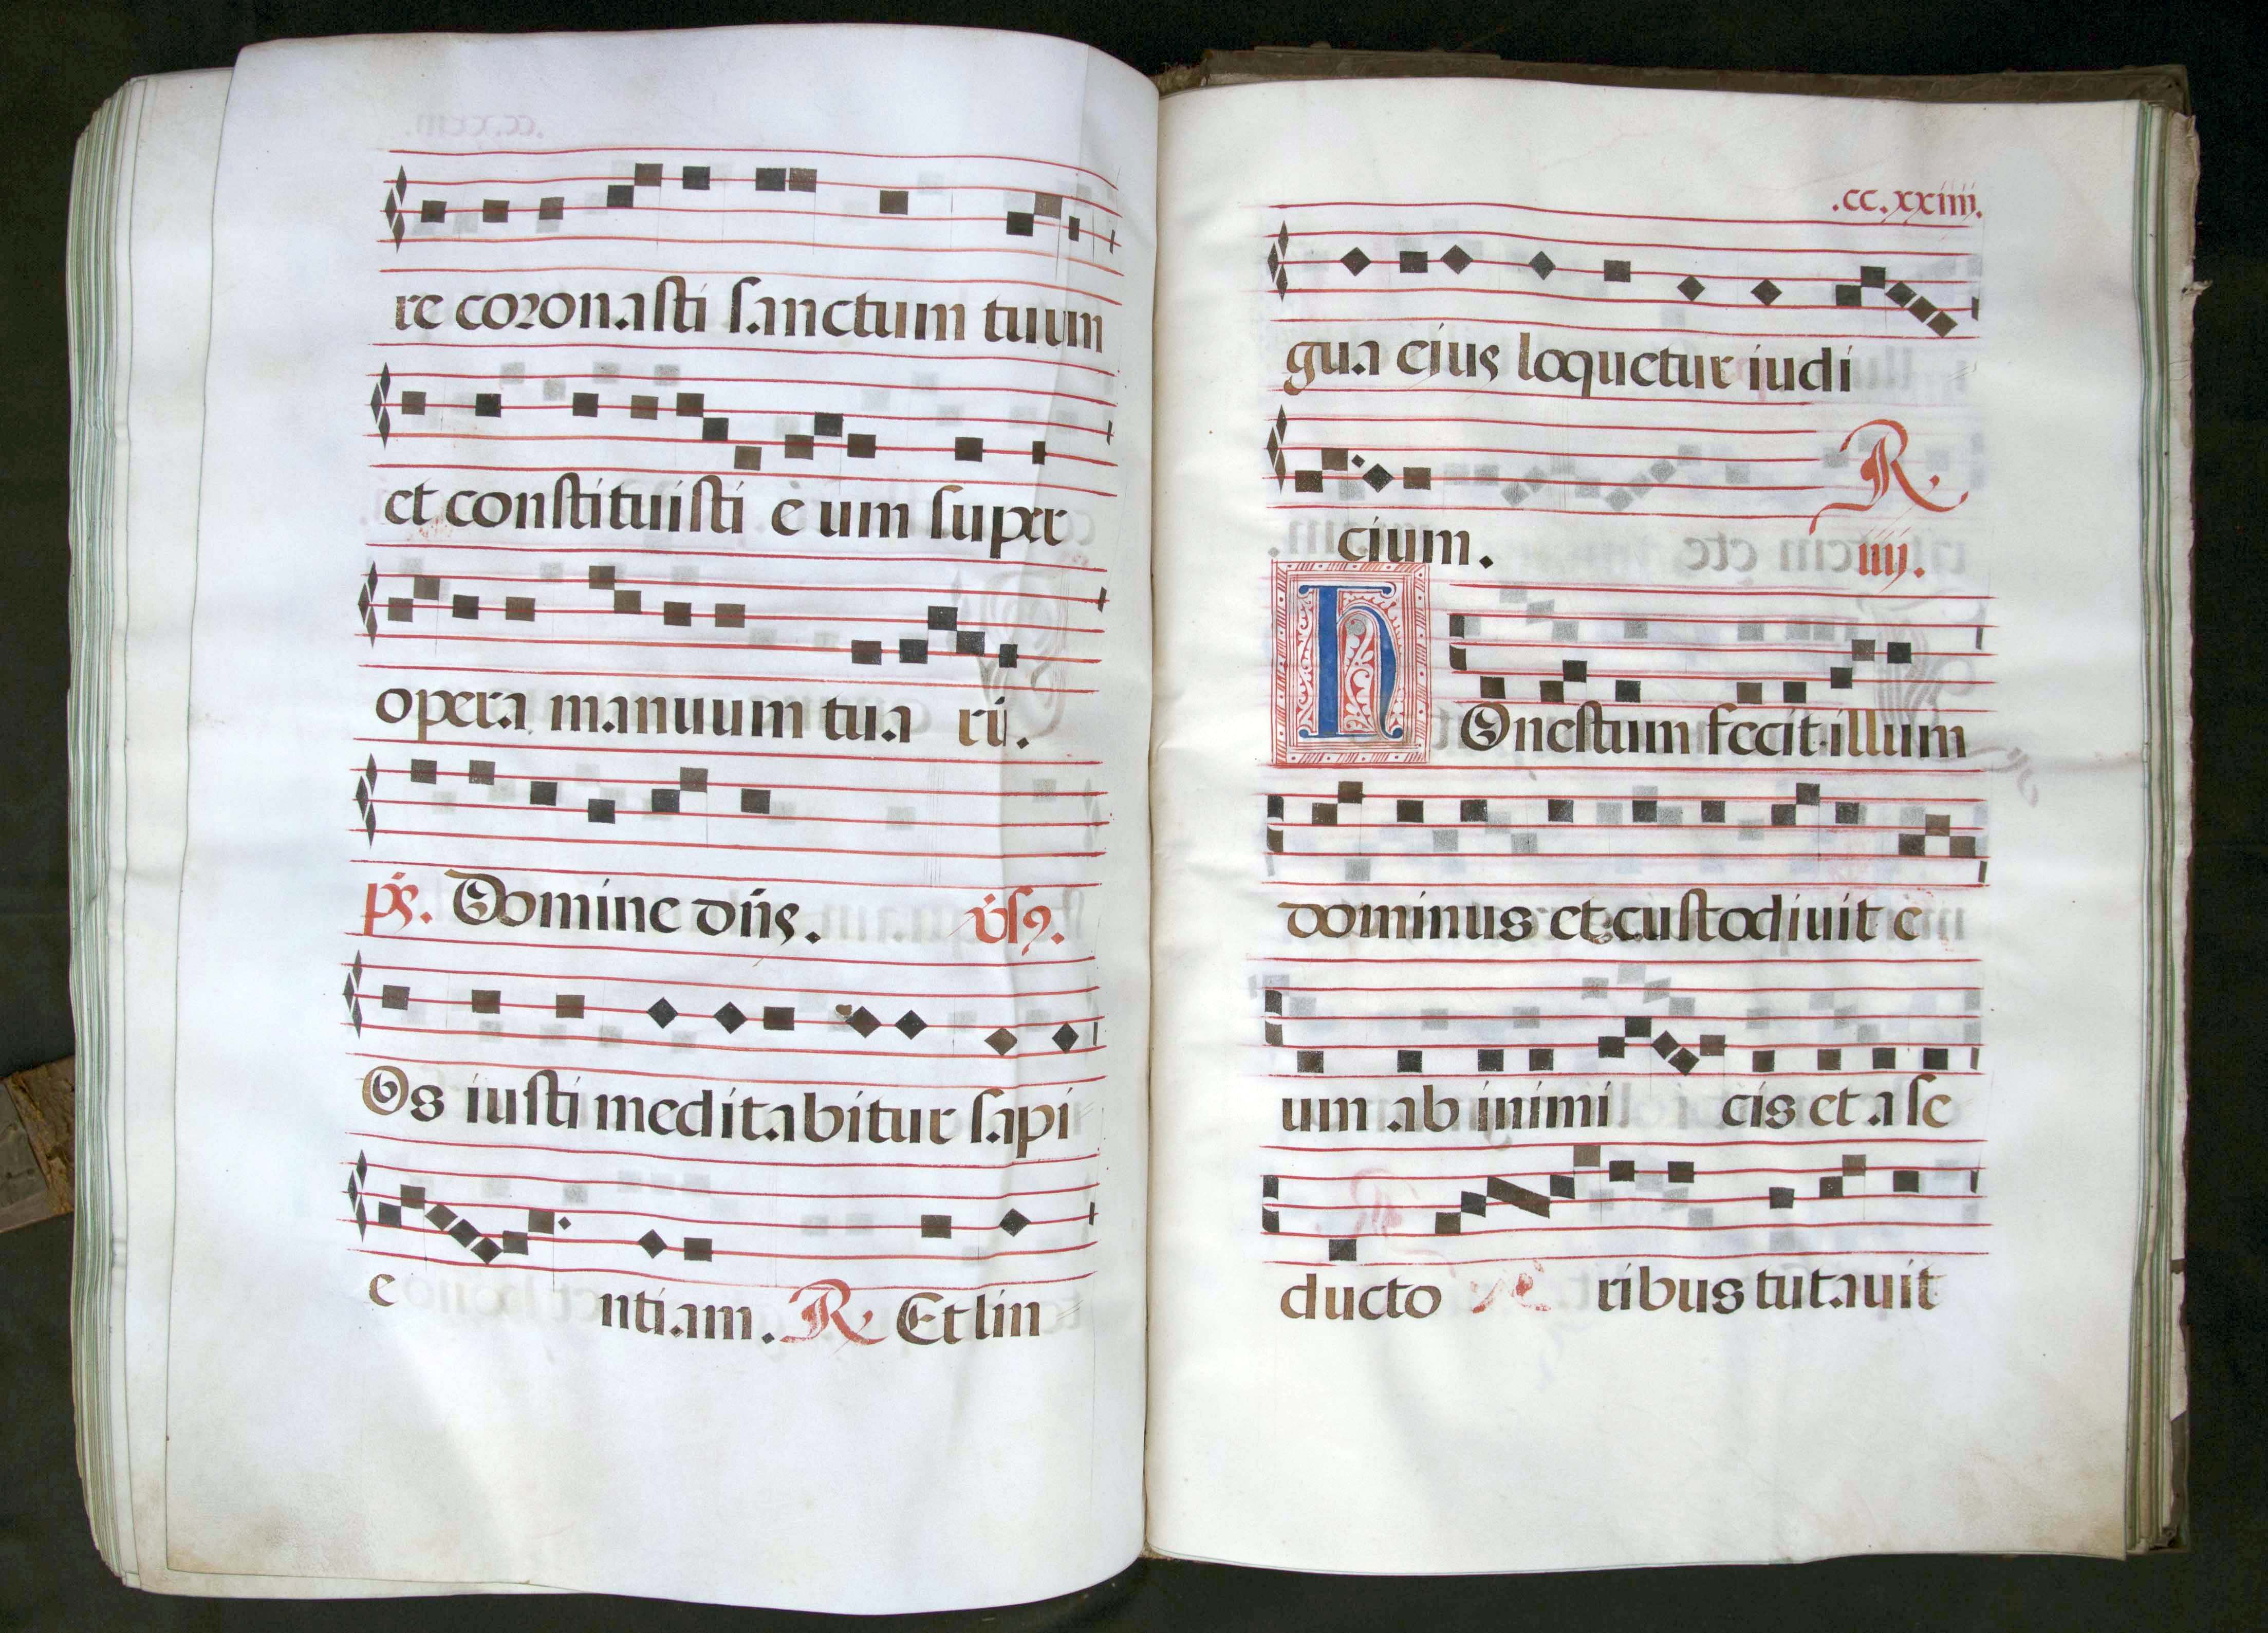 re coronasti sanctum tuum
et constituisti e um super
opera manuum tua rū.
ps. Domine dn̄s. v̄sꝯ.
Os iusti meditabitur sapi
e ntiam. R. Et lin
.cc.xxiiii.
gua eius loquetur iudi
R.
cium. iiii.
hOnestum fecit illum
dominus et custodiuit e
um ab inimi cis et a se
ducto ribus tutauit